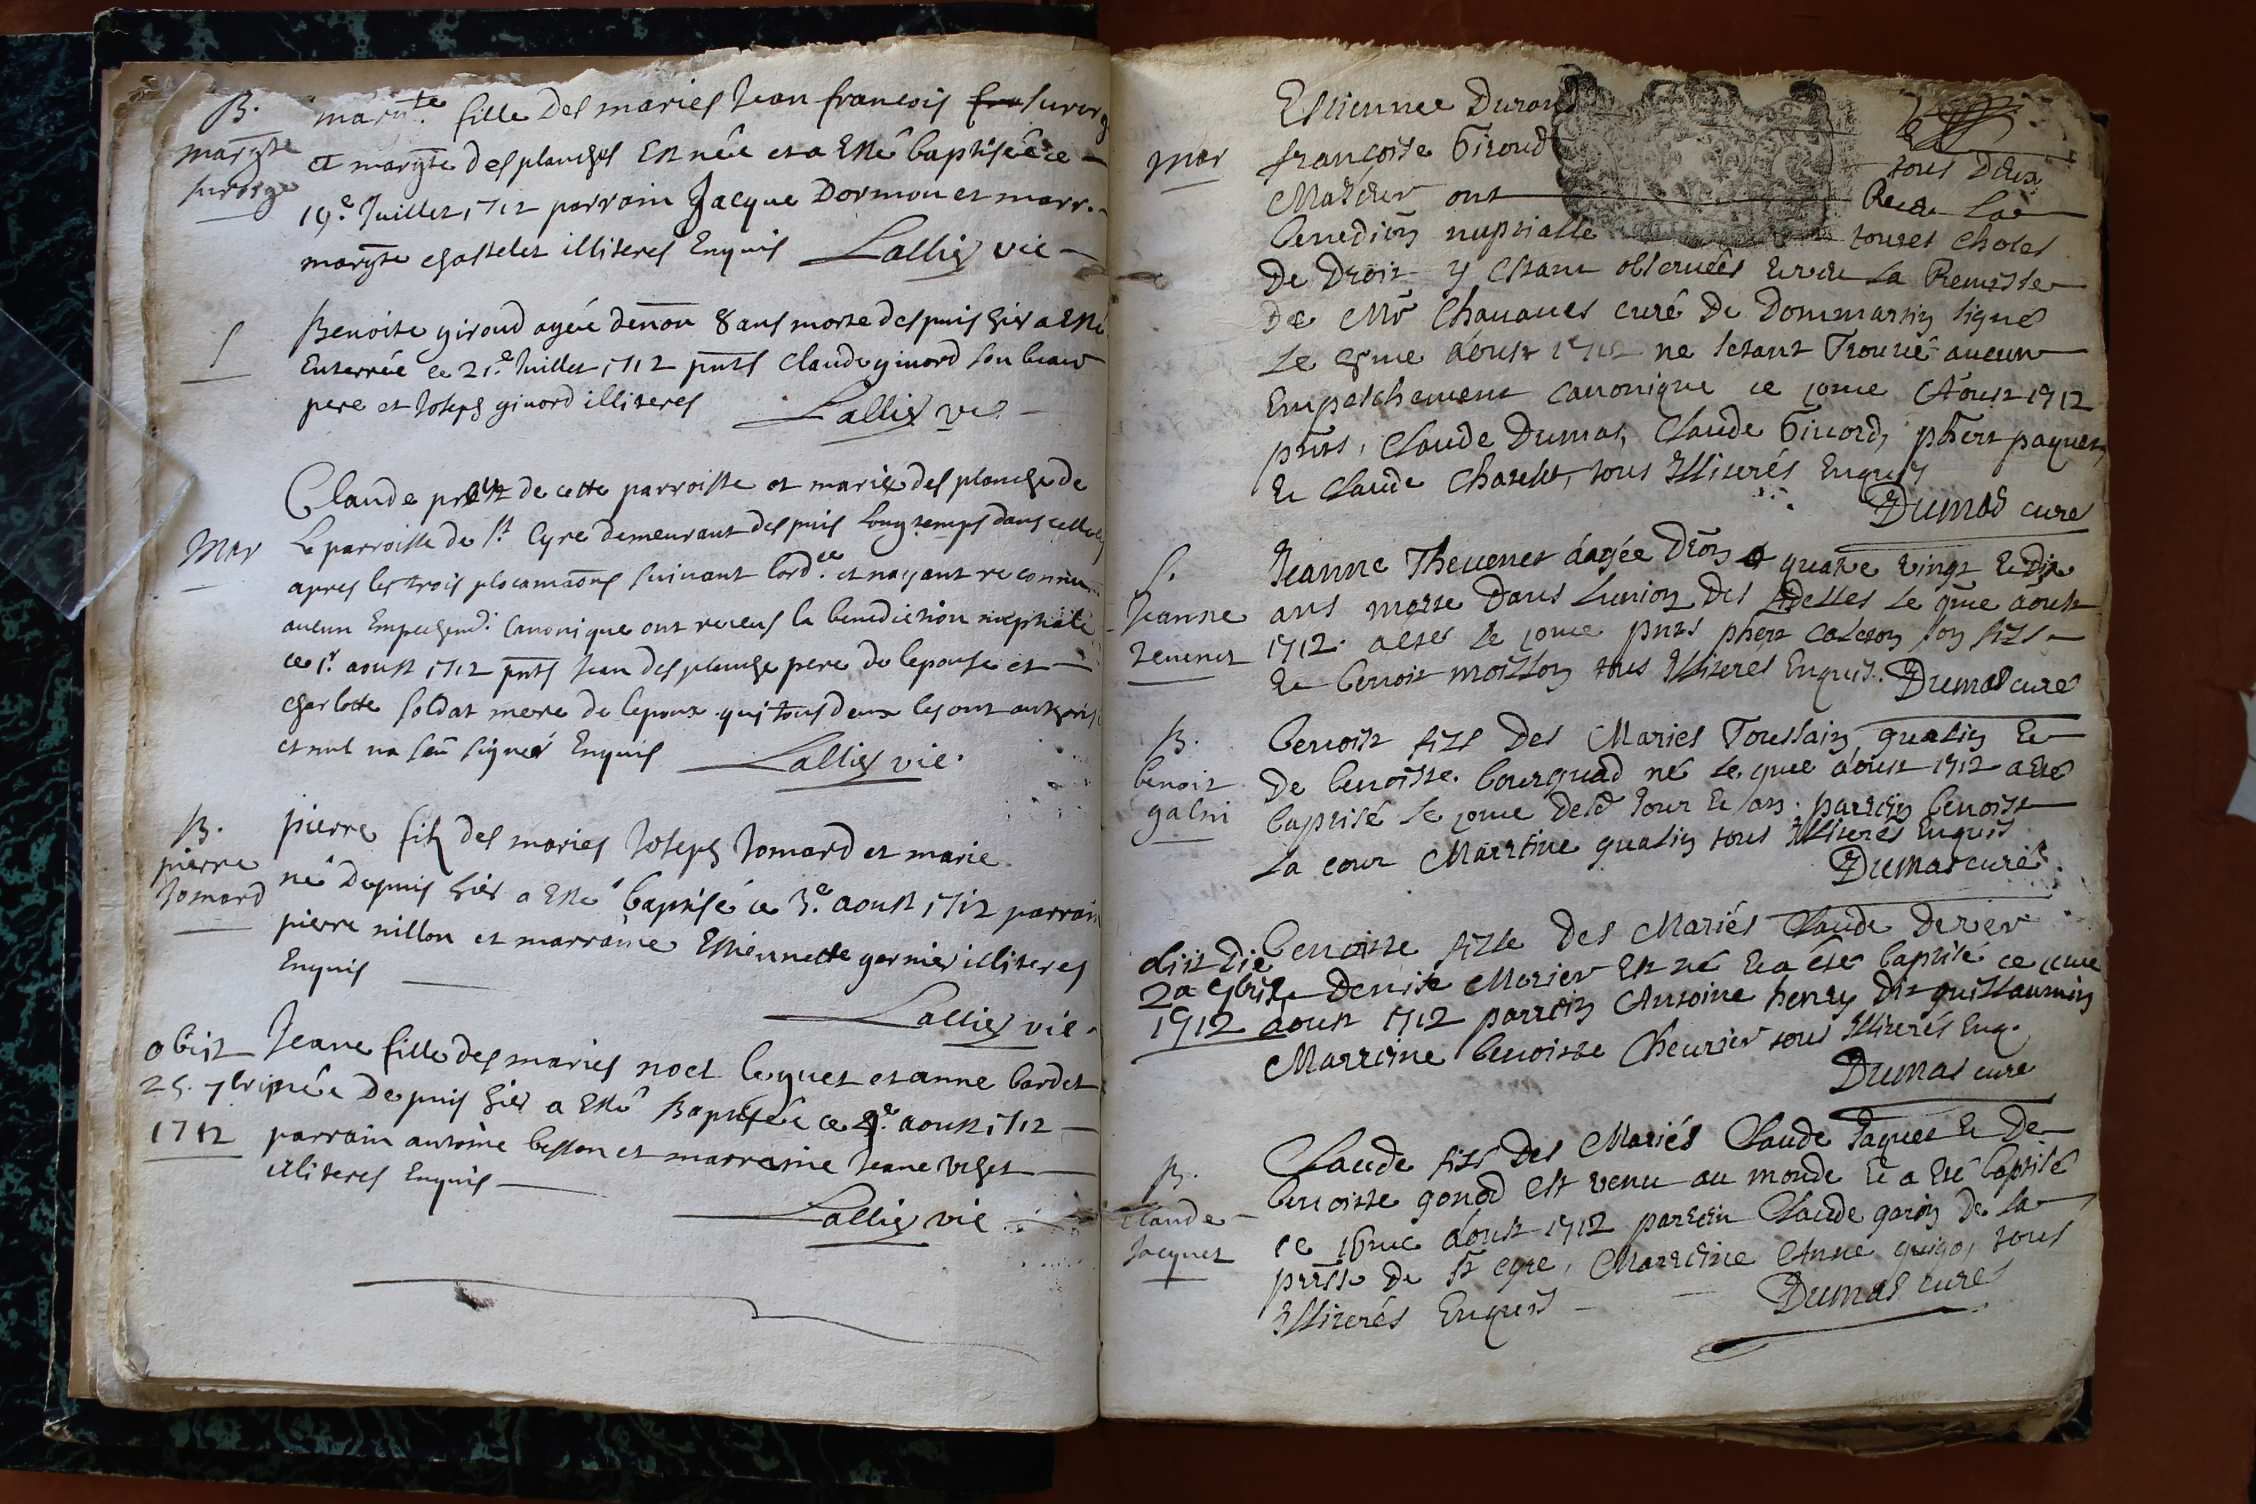 B.
margte
surorge
margte. fille des maries Jean francois surorg
et margte desplanches Est née et a Esté baptiséê ce
19e. Juillet 1712 parrain Jacque Dormon et marr.
margte chastelet illiteres Enquis Lallié vic
S
Benoite giroud agée denōn 8 ans morte despuis hier a Esté
Enterréé ce 21.e Juillet 1712 pnts Claude ginord son beau
pere et Joseph ginord illiteres Lallié vic
Mar
Claude de cette parroisse et marie desplanche de
La parroisse de St Cyre demeurant despuis Longtemps dans celle cy
apres les trois plocamaōns suivant lordce et nayant reconnu
aucun Empeschemt. Canonique ont receus la benediction nuptiale
ce 1r. aoust 1712 pnts Jean desplanche pere de lepouse et
charlotte soldat mere de lepoux qui tous deux les ont authorisé
et nul na sceu signer Enquis Lallié vic.
B.
pierre
Jomard
pierre filz des maries Joseph Jomard et marie
né Depuis hier a Esté baptisé ce 3.e aoust 1712 parrain
pierre nillon et marraine Estiennette garnier illiteres
Enquis
Lallié vic.
obiit
25. 7bris
1712
Jeane fille des maries noel Cognet et anne bardet
née Depuis hier a Esté Baptiséé ce 4.e aoust 1712
parrain antoine besson et marraine Jeane
illiteres Enquis
Lallié vic
mar
Estienne Durand
françoise Giroud tous Deux
ont Receu La
benediōn nuptialle toutes choses
De Droit y Estant observées Et veu La Remisse
De Mr Chavanes curé De Dommartin signé
Le 8me Aoust 1712 ne sestant Trouvé aucun
Empeschement canonique ce 10me Aoust 1712
pnts, Claude Dumas, Claude Giuord, phert paquet,
Et Claude Chatelet, tous Illiterés Enquis
Dumas curé
S.
Jeanne
Tevenet
Jeanne Thevenet âagée Deōn quatre vingt Et Dix
ans morte Dans Lunion Des fidelles Le 9me aoust
1712. a Le 10me pnts phert son filz
Et Benoit moisson tous Illiteres Enquis. Dumas curé
B.
benoit
galni
Benoist filz Des Mariés Toussain qualin Et
De Benoiste. Bourguad né Le 9me aoust 1712 a Eté
baptisé Le 10me Desd Jour Et an. parrein benoist
La cour Marreine qualin tous Illiterés Enquis
Dumas curé
obiit Die
2a 9bris
1712
Benoiste fille Des Mariés Claude
Denise Morier Est né Et a été baptisé ce
aoust 1712 parrein Antoine henry Dit guillaumin
Marreine benoiste Cheurier tous Illiterés Enq.
Dumas curé
B.
Claude
Jacquet
Claude filz Des Mariés Claude Jaquet Et De
benoiste gonod Est venu au monde Et a été baptisé
ce 16me Aoust 1712 parrein Claude garin De La
prsse De St Cyre, Marreine Anne guigon tous
Illiterés Enquis
Dumas curé